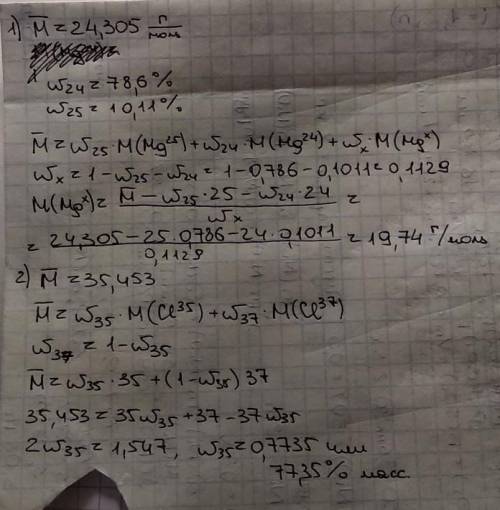 1) M̄ = 24,305 г/моль
ω24 = 78,6%
ω25 = 10,11%
M̄ = ω25 · M(Mg²⁵) + ω24 · M(Mg²⁴) + ωx · M(Mgˣ)
ωx = 1 - ω25 - ω24 = 1 - 0,786 - 0,1011 = 0,1129
M(Mgˣ) = (M̄ - ω25 · 25 - ω24 · 24) / ωx =
= (24,305 - 25 · 0,0786 - 24 · 0,1011) / 0,1129 = 19,74 г/моль
2) M̄ = 35,453
M̄ = ω35 · M(Cl³⁵) + ω37 · M(Cl³⁷)
ω37 = 1 - ω35
M̄ = ω35 · 35 + (1 - ω35) 37
35,453 = 35ω35 + 37 - 37ω35
2ω35 = 1,547, ω35 = 0,7735 или
77,35% масс.